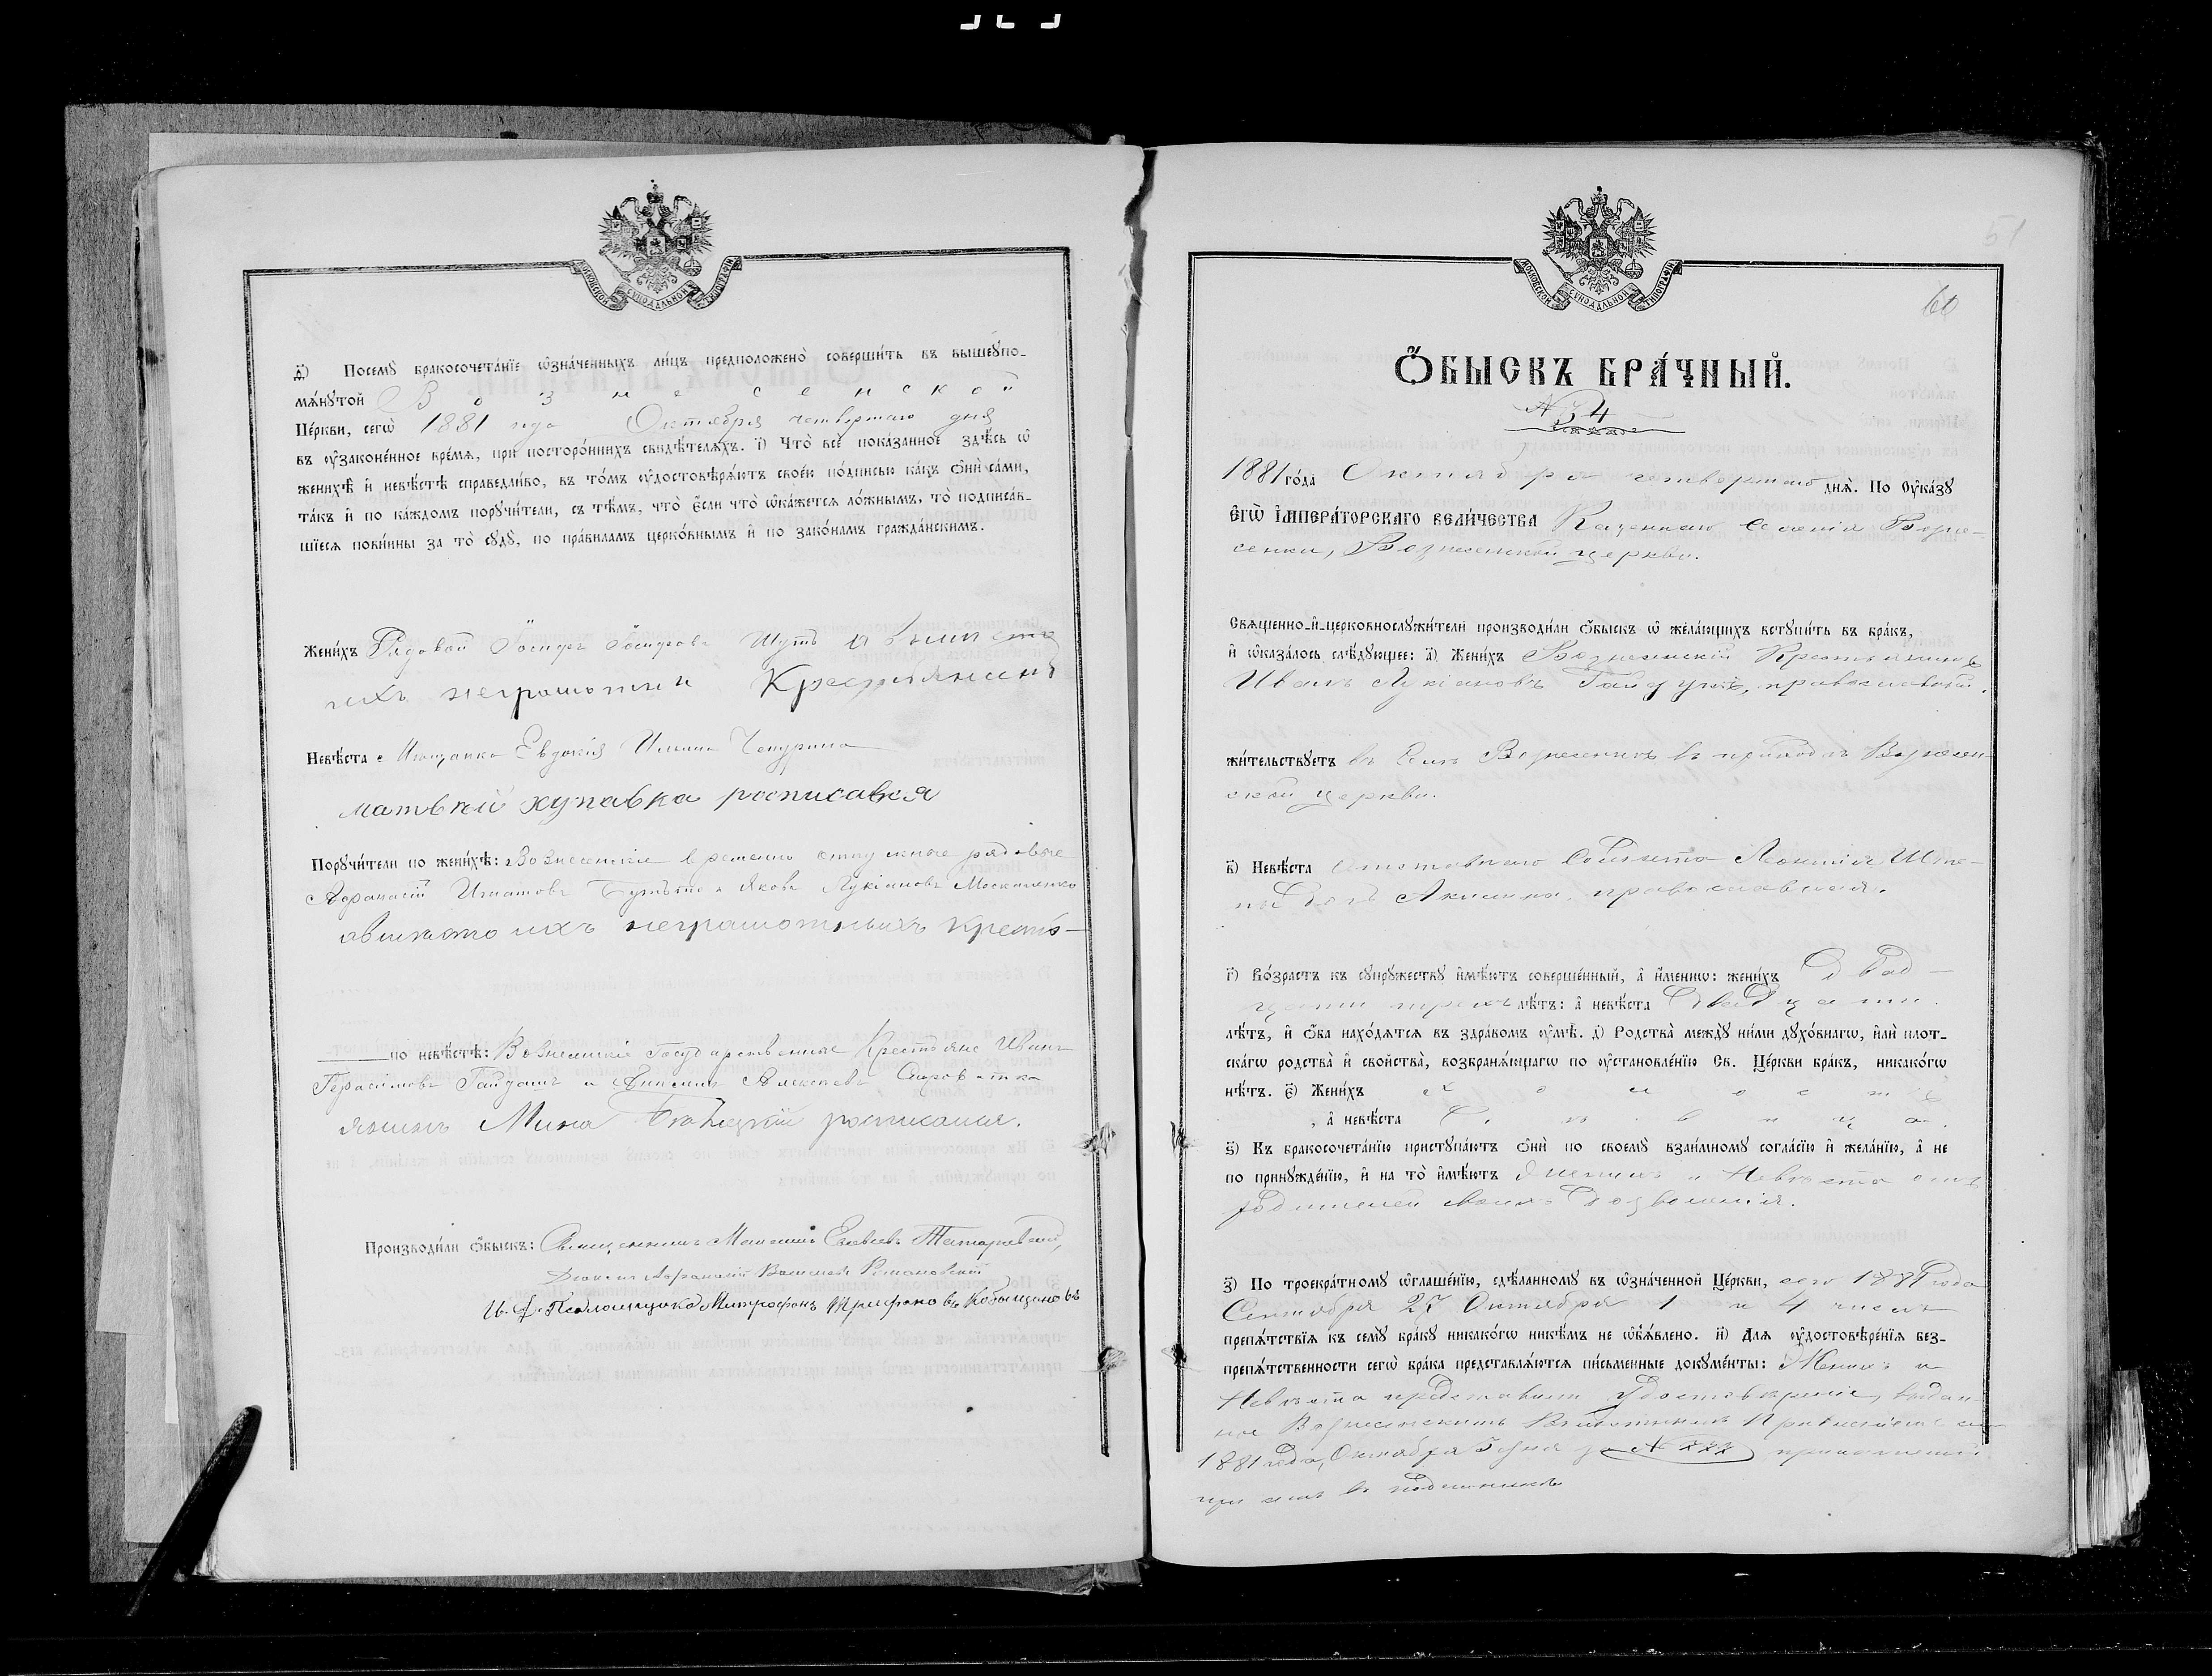 МОСКОВСКОЙ СѴНОДАЛЬНОЙ ТИПОГРАФІИ
д҃і) Посемꙋ̀ бракосочета́нїе ѡ҆зна́ченныхъ ли́цъ предположено̀ соверши́ть въ вышеꙋпо-
мѧ́нꙋтой Вознесенской
Це́ркви, сегѡ̀ 1881 года Октября четвертаго дня
въ ᲂу҆зако́ненное вре́мѧ, при посторо́ннихъ свидѣ́телѧхъ. і҃) Что̀ всѐ пока́занное здѣ́сь ѡ҆
женихѣ̀ и҆ невѣ́стѣ справедли́во, въ то́мъ ᲂу҆достовѣрѧ́ютъ свое́ю по́дписью ка́къ ѻ҆нѝ са́ми,
та́къ и҆ по ка́ждомъ порꙋчи́тели, съ тѣ́мъ, что̀ є҆́сли что̀ ѡ҆ка́жетсѧ ло́жнымъ, то̀ подписа́в-
шїесѧ пови́нны за то̀ сꙋдꙋ̀, по пра́виламъ церко́внымъ и҆ по зако́намъ гражда́нскимъ.
Жени́хъ Рядовой Іосифъ Іосифовъ Шутъ а вместо
ихъ неграмотни Крестянинъ
Невѣ́ста Мѣщанка Евдокія Ильина Чепурина
матвѣй купавка росписався
Порꙋчи́тели по женихѣ̀: Вознесенскіе временно отпускные рядовые
Афанасій Игнатовъ и Яковъ Лукіановъ Москаленко
авместо ихъ неграмотныхъ кресть-
по невѣ́стѣ: Вознесенскіе Государственные Крестьяне Иванъ
Герасимовъ Гайдашъ и Алексѣевъ Сыроватка
янинъ Мина росписался.
Производи́ли ѻ҆́быскъ: Священникъ
Діаконъ Афанасій Васильевъ Романовскій
И. д. Псаломщика Митрофанъ Трифановъ Кобыщановъ
МОСКОВСКОЙ СѴНОДАЛЬНОЙ ТИПОГРАФІИ
51
60
Ѻ҆́БЫСКЪ БРА́ЧНЫЙ.
№ 54
1881 го́да Октября четвертаго днѧ̀. По Оу҆ка́зꙋ
Є҆гѡ̀ І҆мпера́торскагѡ вели́чества Казеннаго Селенія Возне-
сенки, Вознесенской церкви.
Свѧще́нно-и҆-церковнослꙋжи́тели производи́ли ѻ҆́быскъ ѡ҆ жела́ющихъ встꙋпи́ть въ бра́къ,
и҆ ѡ҆каза́лось слѣ́дꙋющее: а҃) Жени́хъ Вознесенскій Крестьянинъ
Иванъ Лукіановъ православный.
жи́тельствꙋетъ въ Селѣ Вознесенкѣ въ приходѣ Вознесен-
ской церкви.
в҃) Невѣ́ста Отставнаго Солдата Леонтія
дочь Акилина, православная.
г҃) Во́зрастъ къ сꙋпрꙋ́жествꙋ и҆мѣ́ютъ соверше́нный, а҆ и҆́меннѡ: жени́хъ Двад-
цати трехъ лѣ́тъ: а҆ невѣ́ста Двадцати.
лѣ́тъ, и҆ ѻ҆́ба нахо́дѧтсѧ въ здра́вомъ ᲂу҆мѣ̀. д҃) Родства̀ междꙋ̀ ни́ми дꙋхо́внагѡ, и҆лѝ плот-
ска́гѡ родства̀ и҆ сво́йства, возбранѧ́ющагѡ по ᲂу҆становле́нїю Св. Це́ркви бра́къ, никако́гѡ
нѣ́тъ. є҃) Жени́хъ холостъ
, а҆ невѣ́ста Дѣвица.
ѕ҃) Къ бракосочета́нїю пристꙋпа́ютъ ѻ҆нѝ по своемꙋ̀ взаи́мномꙋ согла́сїю и҆ жела́нїю, а҆ не
по принꙋжде́нїю, и҆ на то̀ и҆мѣ́ютъ Женихъ и Невѣста отъ
родителей своихъ Дозволенія.
з҃) По троекра́тномꙋ ѡ҆глаше́нїю, сдѣ́ланномꙋ въ ѡ҆зна́ченной Це́ркви, сего 1881 года
Сентября 27 Октября 1 и 4 чиселъ
препѧ́тствїѧ къ семꙋ̀ бра́кꙋ никако́гѡ никѣ́мъ не ѡ҆б̾ѧ́влено. и҃) Длѧ ᲂу҆достовѣре́нїѧ без-
препѧ́тственности сегѡ̀ бра́ка представлѧ́ютсѧ пи́сьменные докꙋме́нты: Женихъ и
Невѣста представили Удостовѣреніе, выдан-
ное Вознесенскимъ Волостнымъ Правленіемъ
1881 года, Октября 3 дня за № 777 приложенн
при семъ въ подлинникѣ